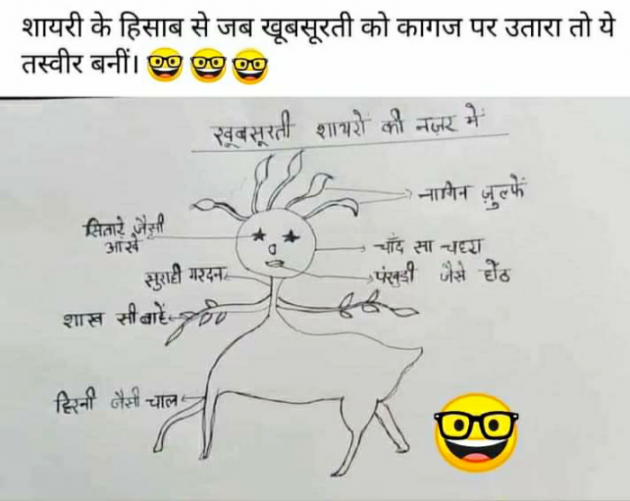 शायरी के हिसाब से जब खूबसूरती को कागज पर उतारा तो ये
तस्वीर बनीं। 🤓 🤓 🤓
खूबसूरती शायरों की नज़र में
नागिन ज़ुल्फें
सितारे जैसी
आंखें
चाँद सा चहरा
सुराही गरदन
पंखुड़ी जैसे होंठ
शाख सी बाहें
हिरनी जैसी चाल